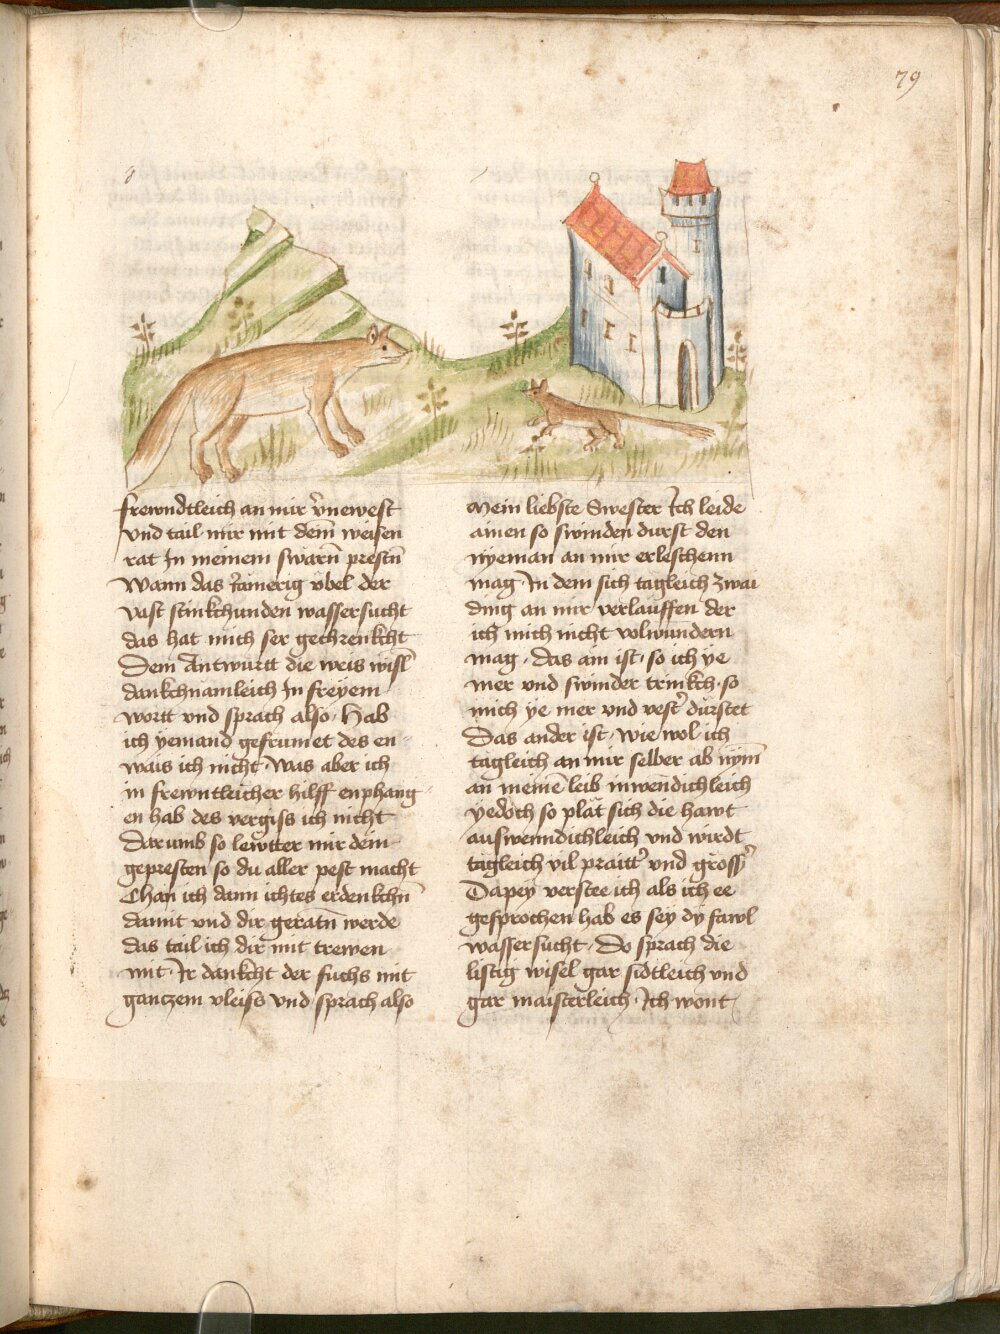 79
frewndtleich an mir v̉newest
vnd tail mir mit dem̄ weisen
rat Jn meinem swarn̄ prestn̄
Wann das Jamerig vbel der
vast stinkchunden wassersucht
das hat mich ser gechrenkcht
Dem Antwurtt die weis wisl̄
dankchnamleich Jn freyem
wortt vnd sprach also · Hab
ich yemand gefrumet des en
wais ich nicht Was aber ich
in frewntleicher hilff enphang
en hab des vergiss ich nicht
Darumb so lewtter mir dein
gepresten so du aller pest macht
Chan ich dann ichtes erdenkchn̄
damit vnd dir geratn̄ werde
das tail ich dir mit trewen
mit · Ir dankcht der fuchs mit
ganczem vleiss vnd sprach also
Mein liebste Swester Ich leide
ainen so swinden durst den
nyeman an mir erleschenn
mag · Jn dem sich tagleich zwai
ding an mir verlauffen der
ich mich nicht volwundern
mag · das ain ist · so ich ye
mer vnd swinder trinkch · so
mich ye mer vnd vest̉ durstet
Das ander ist · wie wol ich
tagleich an mir selber ab nym̄
an meinē leib inwendichleich
yedoch so plät sich die hawt
auswenndichleich vnd wirdt
tagleich vil praitt̉ vnd gröss̉
Dapey verstee ich als ich ee
gesprochen hab es sey dy fawl
wassersucht · Do sprach die
listig wisel gar sidtleich vnd
gar maisterleich · Ich wont